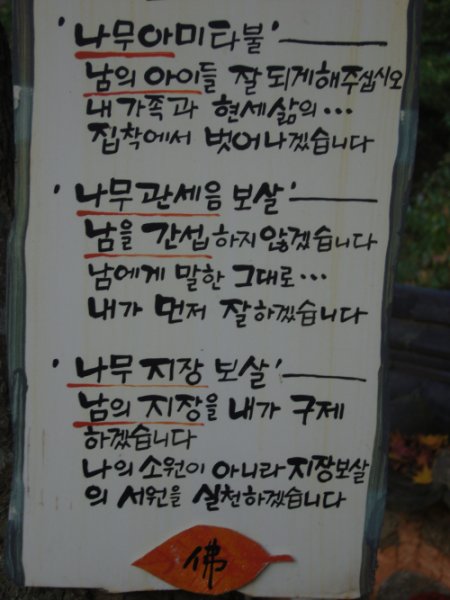 '나무아미타불'
남의 아이들 잘 되게해주십시오
내 가족과 현세삶의...
집착에서 벗어나겠습니다
'나무관세음보살'
남을 간섭하지 않겠습니다
남에게 말한 그대로...
내가 먼저 잘하겠습니다
'나무지장보살'
남의 지장을 내가 구제
하겠습니다
나의 소원이 아니라 지장보살
의 서원을 실천하겠습니다
佛